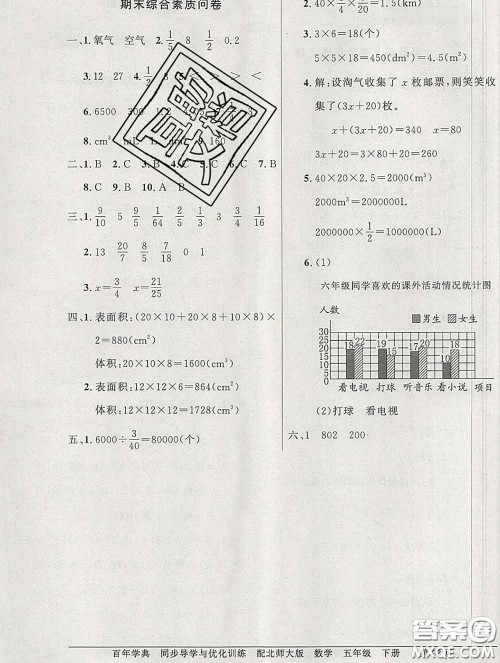 期末综合素质问卷
一、1. 氧气 空气 2. 1/5 8 1/2 0.2
3. 12 27 4. 1/2 8
> > <
6. 6500 300
8. cm³ mL 160
二、1. B 2. C 3. B 4. C 5. C 6. C 7. B
8. C 9. B 10. A B
三、1. 9/10 5 9/5 1/64 2/5 3/2 3/16
2. 13 20/7 5/8 7/18 0 1
3. x=3/4 x=21/25
四、1. 表面积：(20×10+20×8+10×8)×
2=880(cm²)
体积：20×10×8=1600(cm³)
2. 表面积：12×12×6=864(cm²)
体积：12×12×12=1728(cm³)
五、1. 6000÷3/40=80000(个)
2. 40×20×1/800=1.5(km)
3. 3×6=18(个)
5×5×18=450(dm²)
4. 解：设淘气收集了 x 枚邮票，则笑笑收
集了(3x+20)枚。
x+(3x+20)=340 x=80
3x+20=260
5. 40×20×2.5=2000(m³)
2000m³=2000000L
2000000×1/2=1000000(L)
6. (1)
六年级同学喜欢的课外活动情况统计图
人数
男生 女生
30
25
20
15
10
5
0
18 22 19 15 17 20 10 18
看电视 打球 听音乐 看小说 项目
(2)打球 看电视
六、1 802 200
百年学典 同步导学与优化训练 配北师大版 数学 五年级 下册
答案圈